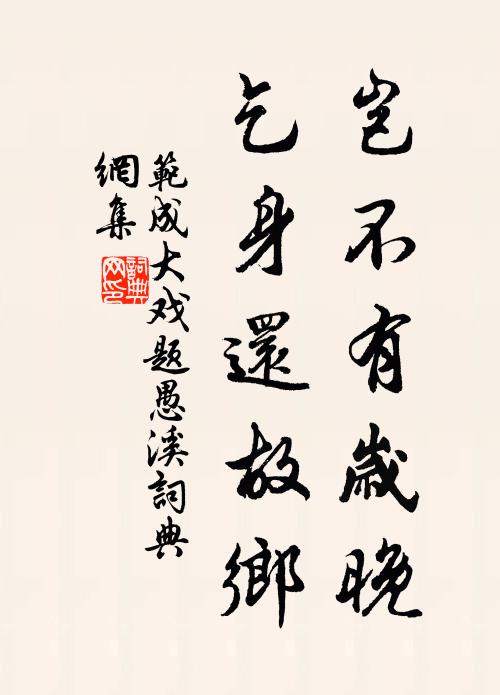 岂不有歲晚
乞身還故鄉
範成大戏题愚溪詞典
網集
詞典
网印